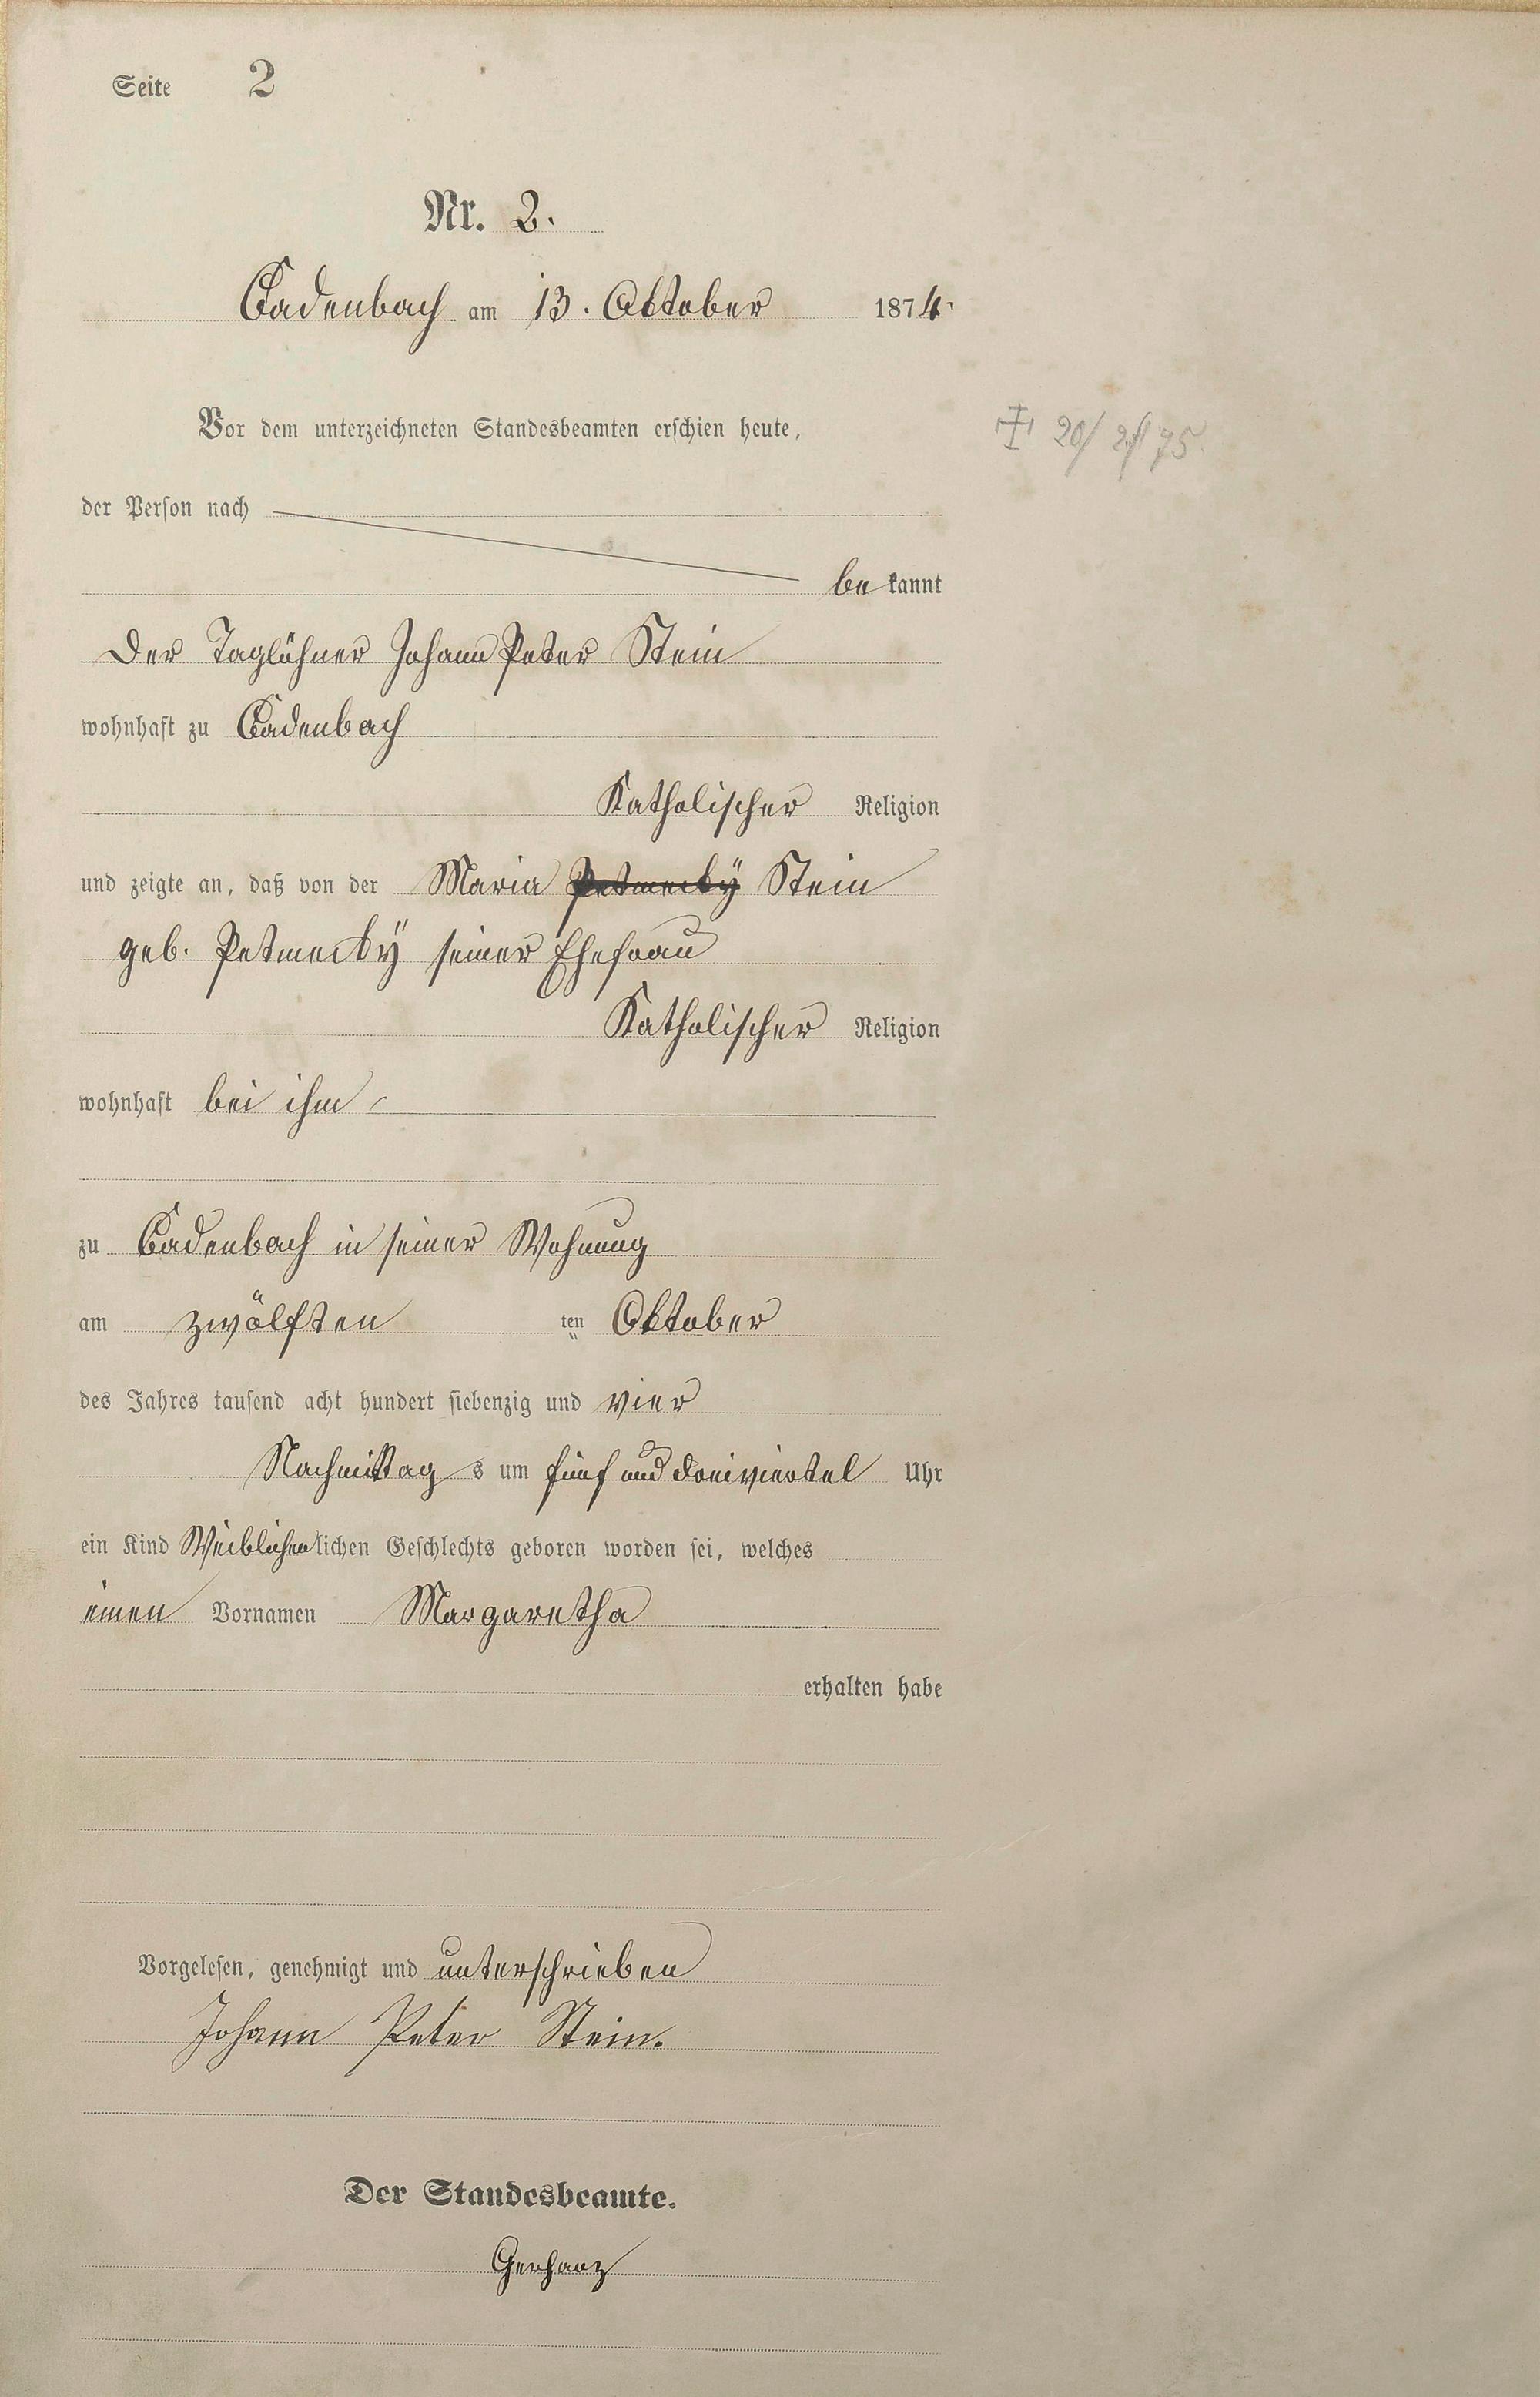 Seite 2
Nr. 2.
Cadenbach am 13. Oktober 1874.
Vor dem unterzeichneten Standesbeamten erschien heute,
der Person nach
bekannt
Der Taglöhner Johann Peter Stein
wohnhaft zu Cadenbach
Katholischer Religion
und zeigte an, daß von der Maria Petmecky Stein
geb. Petmecky seiner Ehefrau
Katholischer Religion
wohnhaft bei ihm
zu Cadenbach in seiner Wohnung
am zwölften ten Oktober
des Jahres tausend acht hundert siebenzig und vier
Nachmittags um fünf und dreiviertel Uhr
ein Kind Weiblichen lichen Geschlechts geboren worden sei, welches
einen Vornamen Margaretha
erhalten habe
Vorgelesen, genehmigt und unterschrieben
Johann Peter Stein.
Der Standesbeamte.
Gerharz